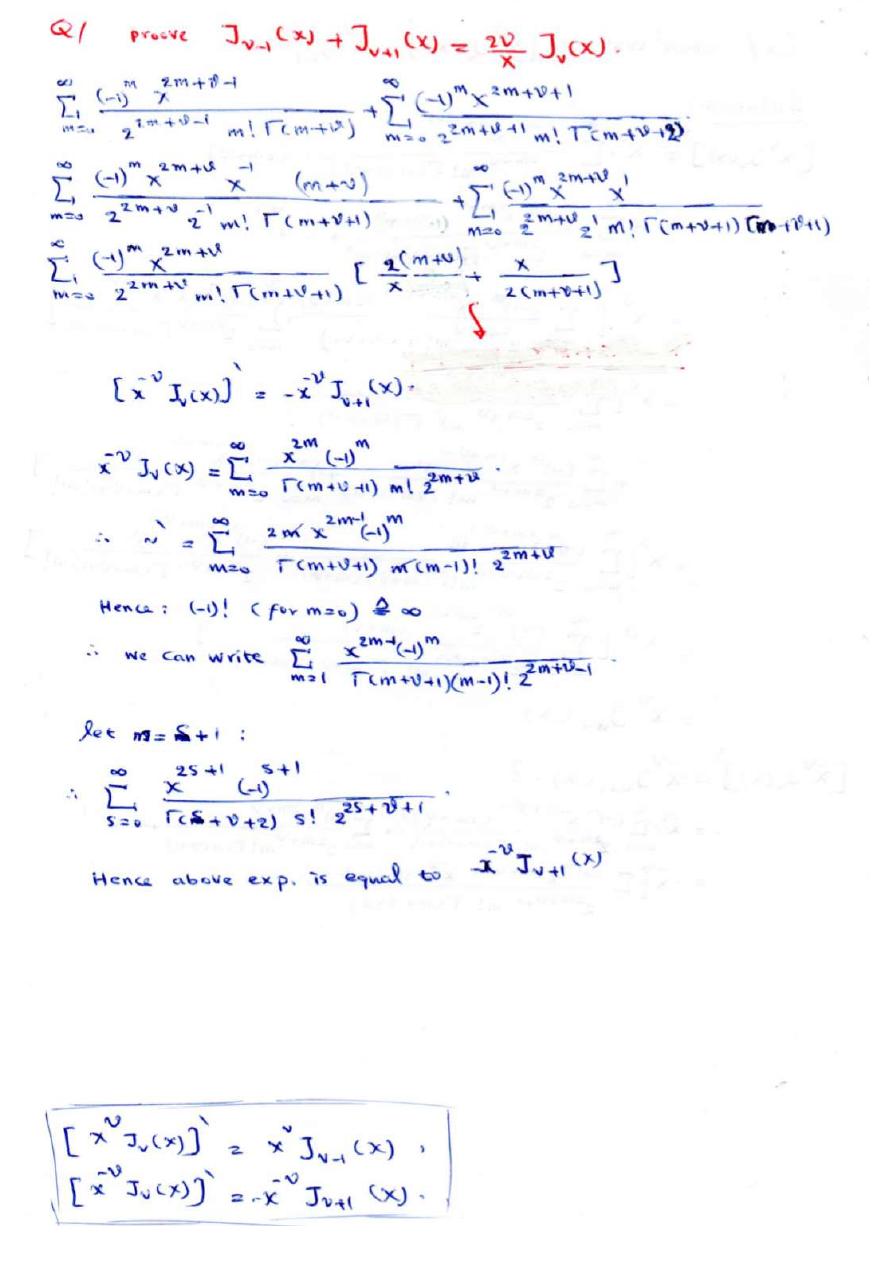 Q1 proove J_{ν-1}(x) + J_{ν+1}(x) = \frac{2ν}{x} J_ν(x).
\sum_{m=0}^{∞} \frac{(-1)^m x^{2m+ν-1}}{2^{2m+ν-1} m! Γ(m+ν)} + \sum_{m=0}^{∞} \frac{(-1)^m x^{2m+ν+1}}{2^{2m+ν+1} m! Γ(m+ν+2)}
\sum_{m=0}^{∞} \frac{(-1)^m x^{2m+ν} x^{-1} (m+ν)}{2^{2m+ν} 2^{-1} m! Γ(m+ν+1)} + \sum_{m=0}^{∞} \frac{(-1)^m x^{2m+ν} x^1}{2^{2m+ν} 2^1 m! Γ(m+ν+1) (m+ν+1)}
\sum_{m=0}^{∞} \frac{(-1)^m x^{2m+ν}}{2^{2m+ν} m! Γ(m+ν+1)} [ \frac{2(m+ν)}{x} + \frac{x}{2(m+ν+1)} ]
[x^{-ν} J_ν(x)]` = -x^{-ν} J_{ν+1}(x).
x^{-ν} J_ν(x) = \sum_{m=0}^{∞} \frac{x^{2m} (-1)^m}{Γ(m+ν+1) m! 2^{2m+ν}}.
∴ ~` = \sum_{m=0}^{∞} \frac{2m x^{2m-1} (-1)^m}{Γ(m+ν+1) m(m-1)! 2^{2m+ν}}
Hence: (-1)! (for m=0) ≙ ∞
∴ we can write \sum_{m=1}^{∞} \frac{x^{2m-1} (-1)^m}{Γ(m+ν+1)(m-1)! 2^{2m+ν-1}}.
let m = s+1 :
∴ \sum_{s=0}^{∞} \frac{x^{2s+1} (-1)^{s+1}}{Γ(s+ν+2) s! 2^{2s+ν+1}}.
Hence above exp. is equal to -x^{-ν} J_{ν+1}(x)
[x^ν J_ν(x)]` = x^ν J_{ν-1}(x),
[x^{-ν} J_ν(x)]` = -x^{-ν} J_{ν+1}(x).